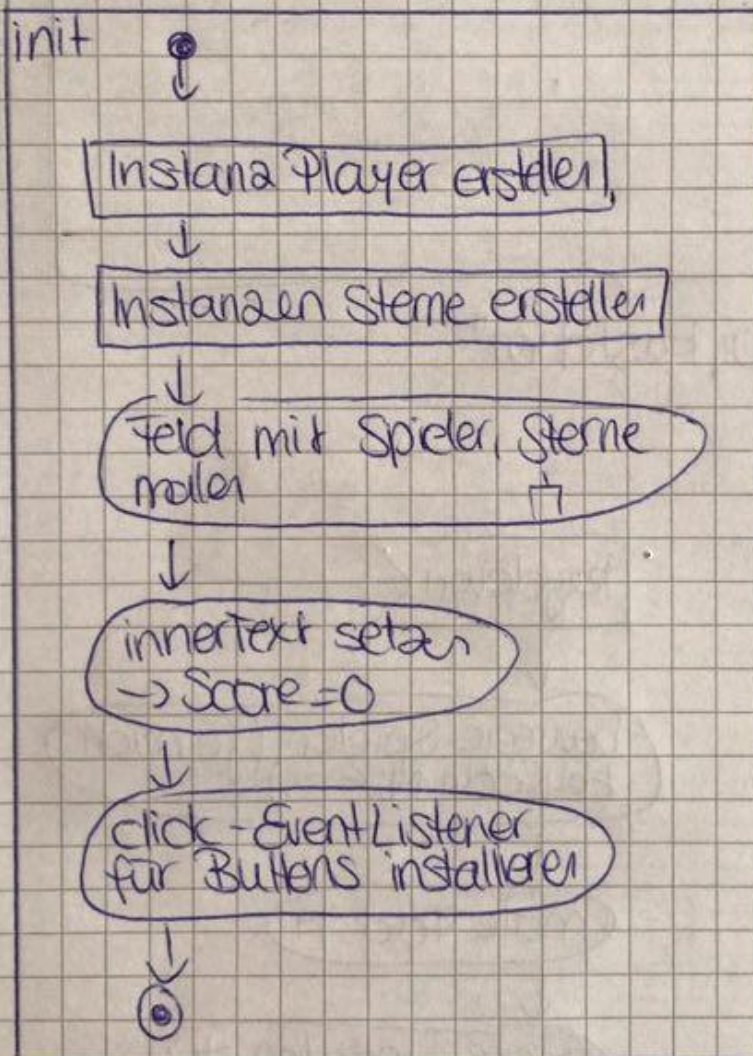 init
Instanz Player erstellen
Instanzen Sterne erstellen
Feld mit Spieler, Sterne
malen
innerText setzen
→ Score = 0
click-EventListener
für Buttons installieren